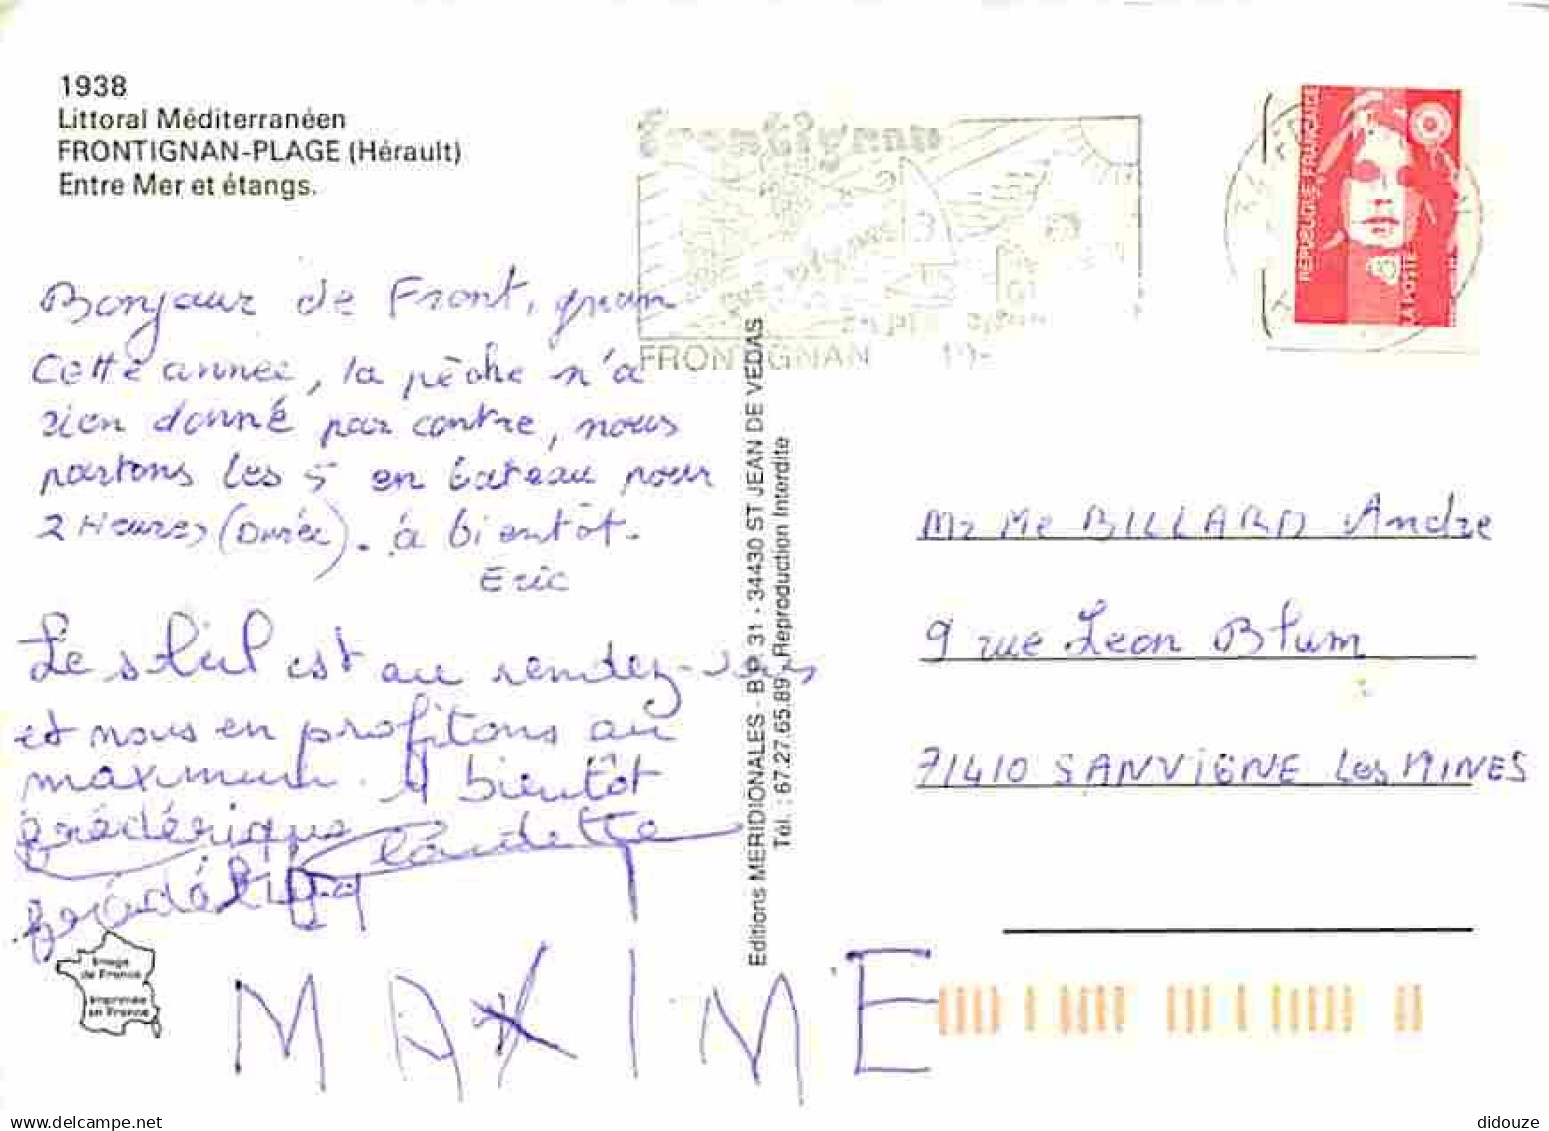 1938
Littoral Méditerranéen
FRONTIGNAN-PLAGE (Hérault)
Entre Mer et étangs.
Frontignan
FRONTIGNAN
RÉPUBLIQUE FRANÇAISE
LA POSTE
Bonjour de Frontignan
Cette année, la pêche n'a
rien donné par contre, nous
partons les 5 en bateau pour
2 Heures (Durée). à bientôt.
Eric
Le soleil est au rendez-vous
et nous en profitons au
maximum. A bientôt
frédérique Claudette
MAXIME
Image
de France
Imprimée
en France
Editions MERIDIONALES - B.P. 31 - 34430 ST JEAN DE VEDAS
Tél. : 67.27.65.89 - Reproduction Interdite
Mr Me BILLARD Andre
9 rue Leon Blum
71410 SANVIGNE Les MINES
didouze